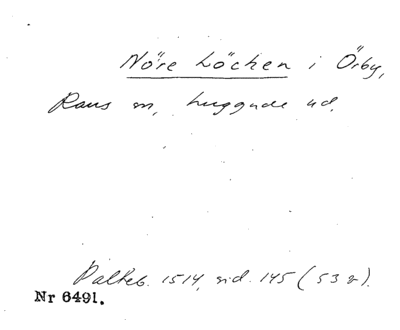 Nöre Löcken i Örby,
Raus sn, huggude ud.
Palteb. 1514, sid. 145 (53 v).
Nr 6491.